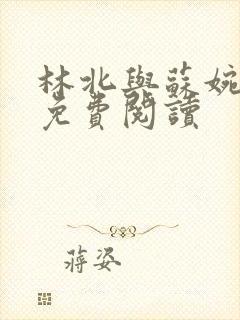 林北與蘇婉
免費閱讀
蔣姿